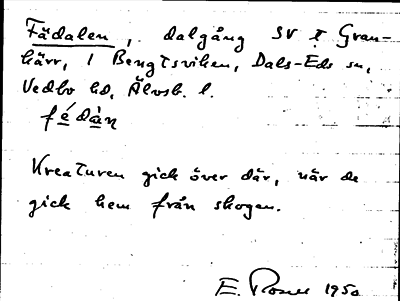 Fädalen, dalgång SV t Gran-
kärr, i Bengtsviken, Dals-Eds sn,
Vedbo hd, Älvsb. l.
fédàn
Kreaturen gick över där, när de
gick hem från skogen.
E. Rosell 1950